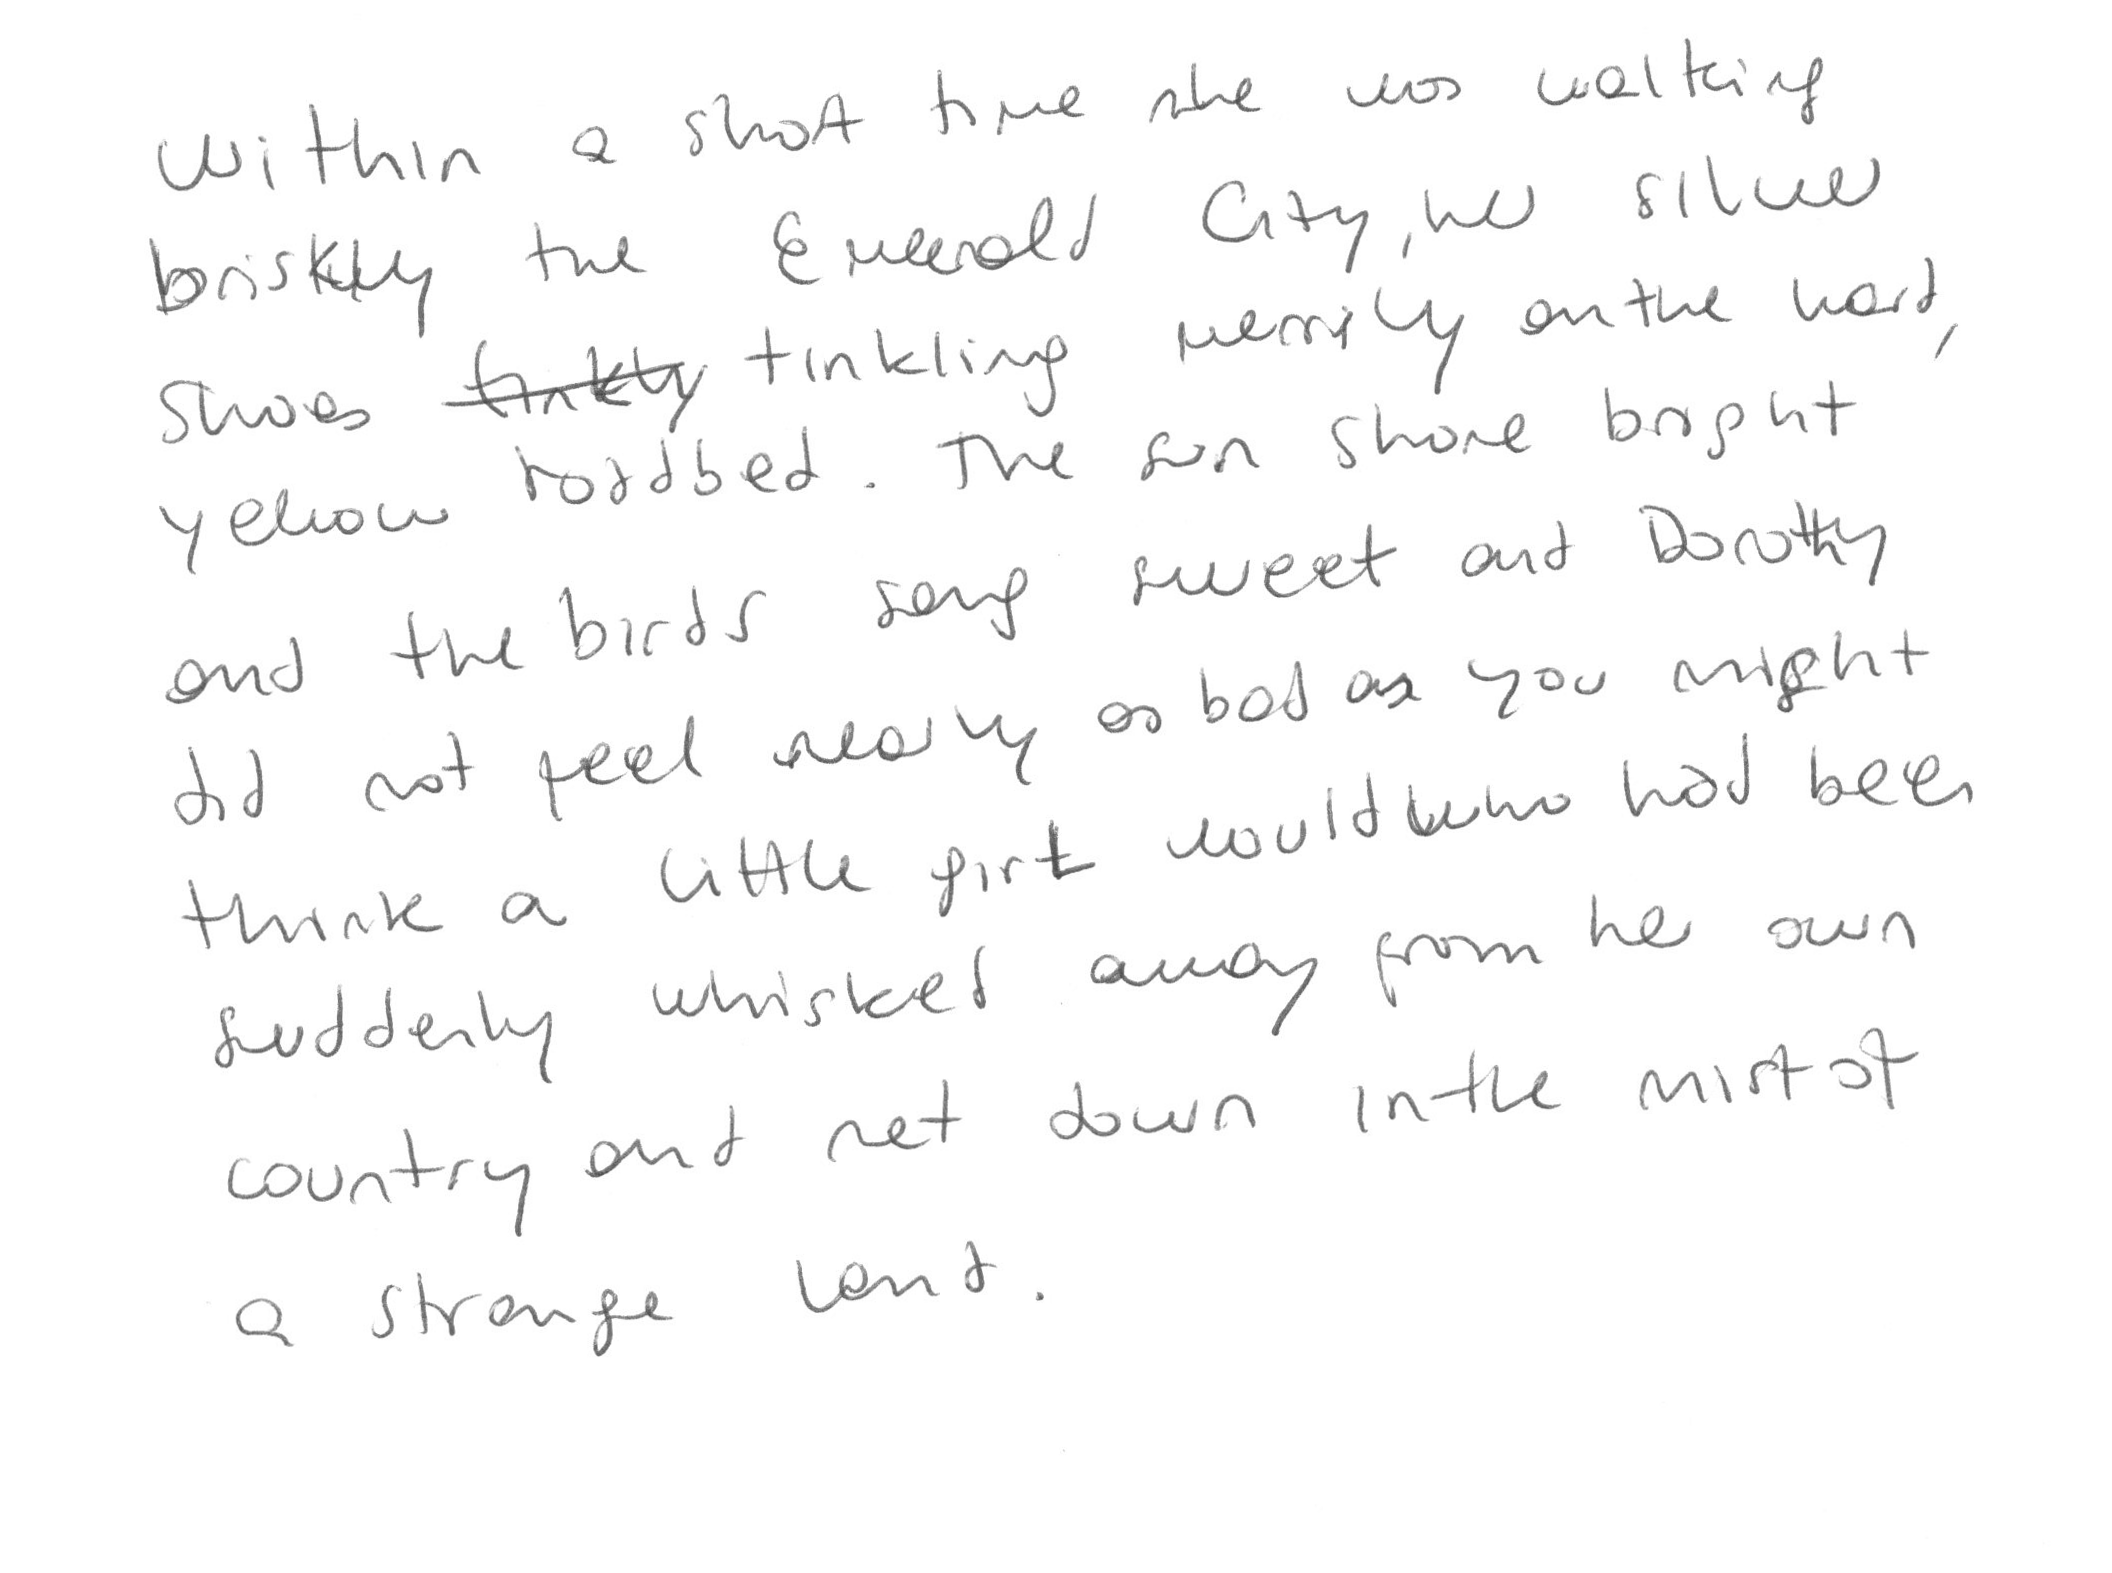 Within a short time she was walking
briskly the Emerald City, her silver
shoes tinkly tinkling merrily on the hard,
yellow roadbed. The sun shone bright
and the birds sang sweet and Dorothy
did not feel nearly as bad as you might
think a little girl would who had been
suddenly whisked away from her own
country and set down in the mist of
a strange land.